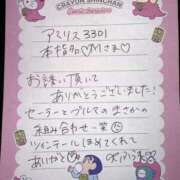 CRAYON SHINCHAN
アミリス 3301
本指名♡Mさま♡
お誘い頂いて
ありがとうございました!
セーラーとブルマのまさかの
組み合わせ 笑
ツインテールほめてくれて
ありがと